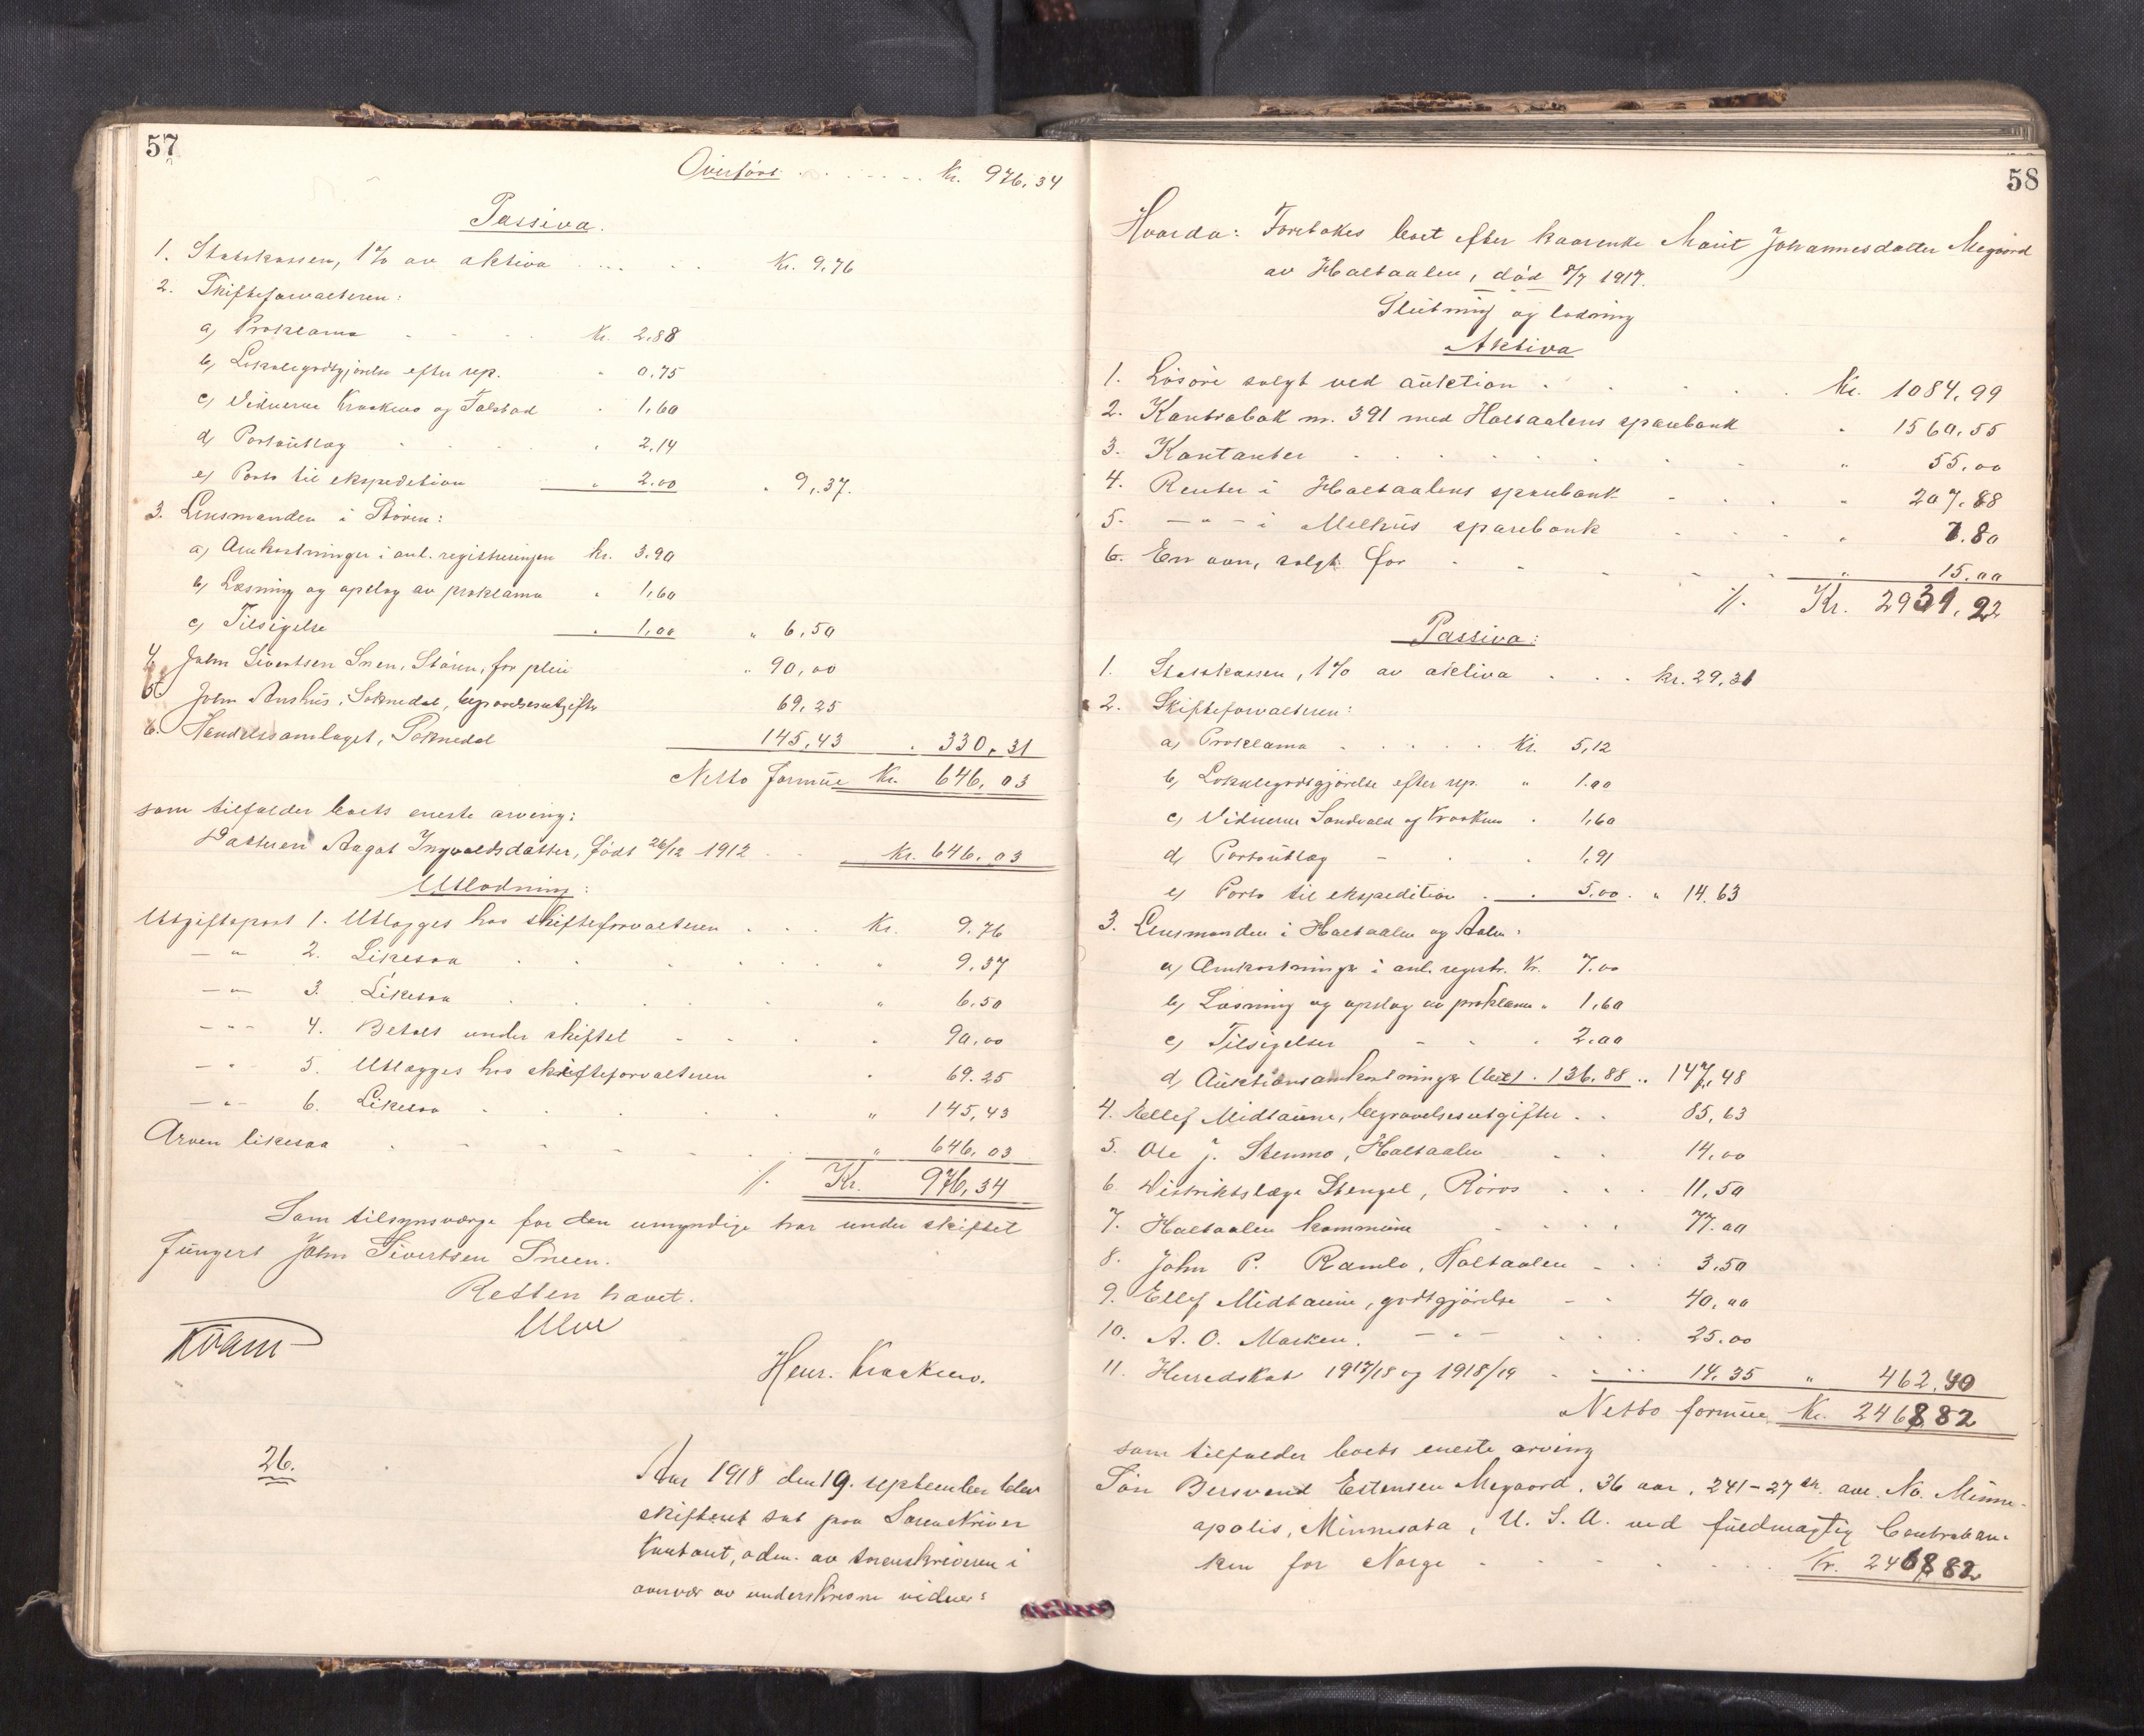 57
Overført . . . . . . . Kr. 976,34
Passiva.
1. Statskassen, 1% av aktiva . . . . . Kr. 9,76
2. Skifteforvalteren:
a) Proklama . . . . Kr. 2,88
b) Lokalegodtgjørelse efter rep. " 0,75
c) Vidnerne Kraakmo og Folstad " 1,60
d) Portoutlæg . . . " 2,14
e) Porto til ekspedition " 2,00 " 9,37.
3. Lensmanden i Støren:
a) Omkostninger i anl. registreringen kr. 3,90
b) Læsning og opslag av proklama " 1,60
c) Tilsigelse " 1,00 " 6,50
4. John Sivertsen Snen, Støren, for pleie " 90,00
5. John Anshus, Soknedal, begravelsesutgifter 69,25
6. Handelssamlaget, Soknedal 145,43 " 330,31
Netto formue Kr. 646,03
som tilfalder boets eneste arving:
Datteren Aagot Ingvaldsdatter, født 26/12 1912 . . . Kr. 646,03
Utlodning:
Utgiftspost 1. Utlægges hos skifteforvalteren . . . Kr. 9,76
— " — 2. Likesaa . . . . . . " 9,37
— " — 3. Likesaa . . . . . " 6,50
— " — 4. Betalt under skiftet - - . . " 90,00
— " — 5. Utlægges hos skifteforvalteren " 69.25
— " — 6. Likesaa . . . . . " 145,43
Arven likesaa . - - - - . " 646,03
./. Kr. 976,34
Som tilsynsværge for den umyndige har under skiftet
fungert John Sivertsen Sneen.
Retten hævet.
Kvam
Henr. Kraakmo.
26.
Aar 1918 den 19. september blev
skifteret sat paa Sorenskriver
kontoret, adm. av sorenskriveren i
overvær av underskrevne vidner:
58
Hvorda: Foretokes boet efter kaarenke Marit Johannesdatter Megaard
av Haltaalen, død 8/7 1917.
Slutning og lodning
Aktiva
1. Løsøre solgt ved auktion . . . . . Kr. 1084,99
2. Kontrabok nr. 391 med Haltaalens sparebank " 1560,55
3. Kontanter . . . . . . . " 55,00
4. Renter i Haltaalens sparebank - . . " 207.88
5. — " — i Melhus sparebank . . . " 7.80
6. En ovn, solgt for . . - - - " 15.00
./. Kr. 2931,22
Passiva:
1. Statskassen, 1% av aktiva . . . kr. 29,31
2. Skifteforvalteren:
a) Proklama . . . . . Kr. 5,12
b) Lokalegodtgjørelse efter rep. " 1.00
c) Vidnerne Sandvald og Kraakmo . 1,60
d) Portoutlæg - . . 1,91
e) Porto til ekspedition . . 5,00 . " 14.63
3. Lensmanden i Haltaalen og Aalen:
a) Omkostninger i anl. registr. Kr. 7.00
b) Læsning og opslag av proklama " 1,60
c) Tilsigelser - - . 2.00
d) Auktionsomkostninger . 136.88 .. 147,48
4. Ellef Midtaune, begravelsesutgifter . . 85,63
5. Ole J. Stenmo, Haltaalen . . 14,00
6. Distriktslæge Stengel, Røros . . . 11,50
7. Haltaalen kommune - . . . 77.00
8. John P. Ramlo, Haltaalen - . : 3,50
9. Ellef Midtaune, godtgjørelse - - 40,00
10. A. O. Morken. — " — . . . 25.00
11. Herredskat 1917/18 og 1918/19 . . . . 14,35 " 462,40
Netto formue Kr. 2468,82
som tilfalder boets eneste arving
Søn Bersvend Estensen Megaard, 36 aar, 241-27 th. ave. No. Minne-
apolis, Minnesota, U. S. A. ved fuldmægtig Centralban-
ken for Norge - . . - - . . . Kr. 2468,82